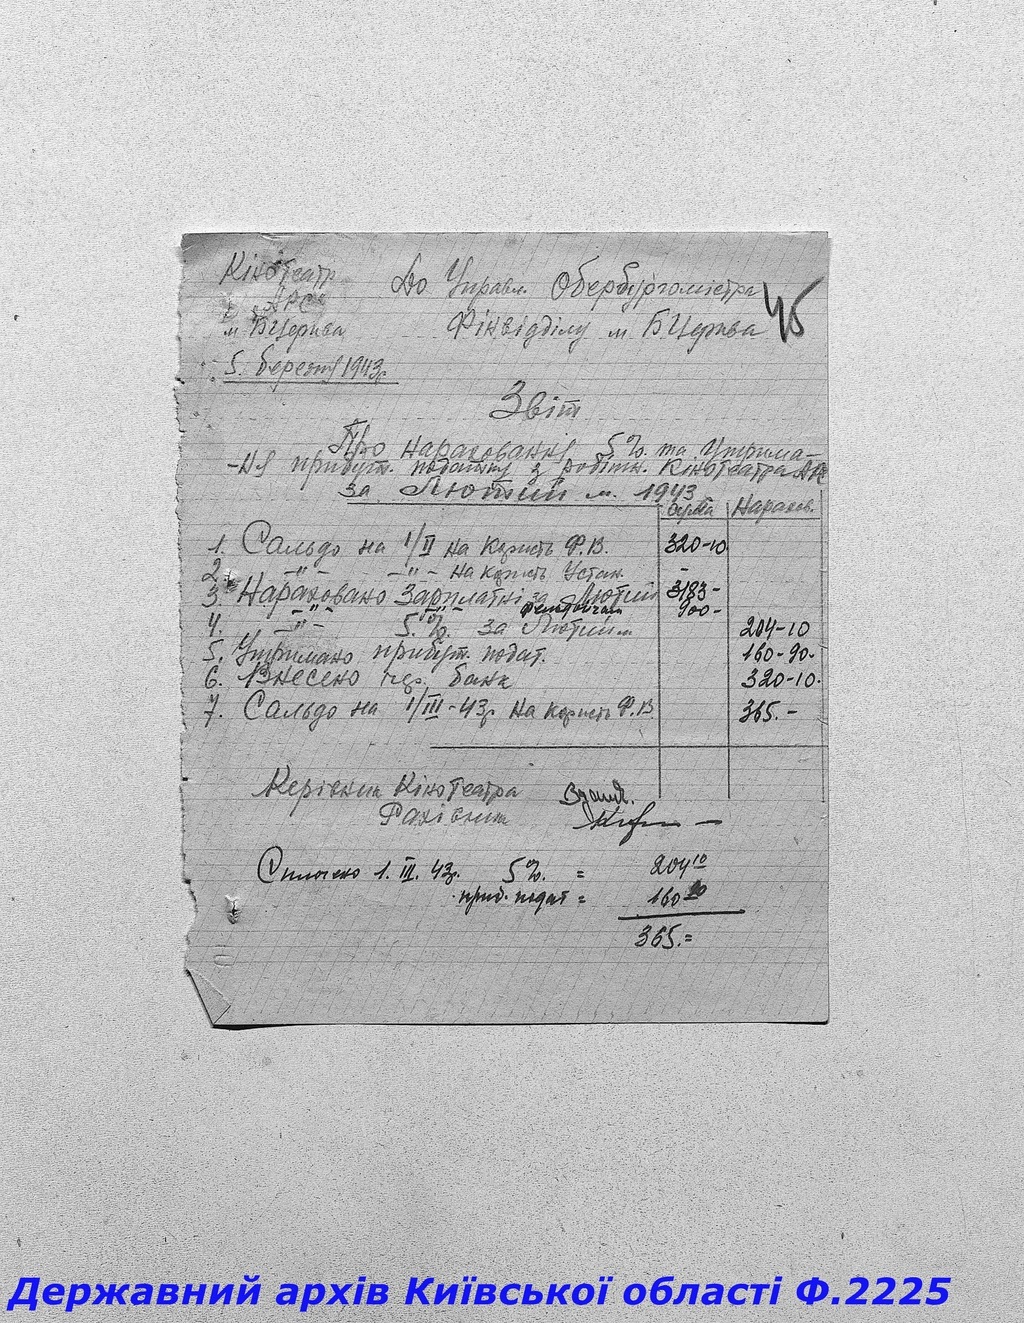 Кінотеатр До Управл. Обербургомістра 45
АРС
м БЦерква Фінвідділу м БЦерква
5. березня 1943р
Звіт
Про нарахування 5% та Утрима-
-ня прибутк. податку з робітн. Кінотеатра
за Лютий м. 1943
Сума Нарахов.
1. Сальдо на 1/II на користь Ф.В. 320-10
2. -"- -"- на користь Устан. -
3. Нараховано Зарплатні за Лютий 3183-
-"- -"- 900-
4. -"- 5% за Лютий м. 204-10
5. Утримано прибут. подат. 160-90-
6. Внесено чер. банк 320-10.
7. Сальдо на 1/III-43р на користь Ф.В. 365.-
Керівник Кінотеатра
Рахівник
Сплочено 1.III.43р. 5% = 204 10
приб. подат = 160 90
365.=
Державний архів Київської області Ф.2225